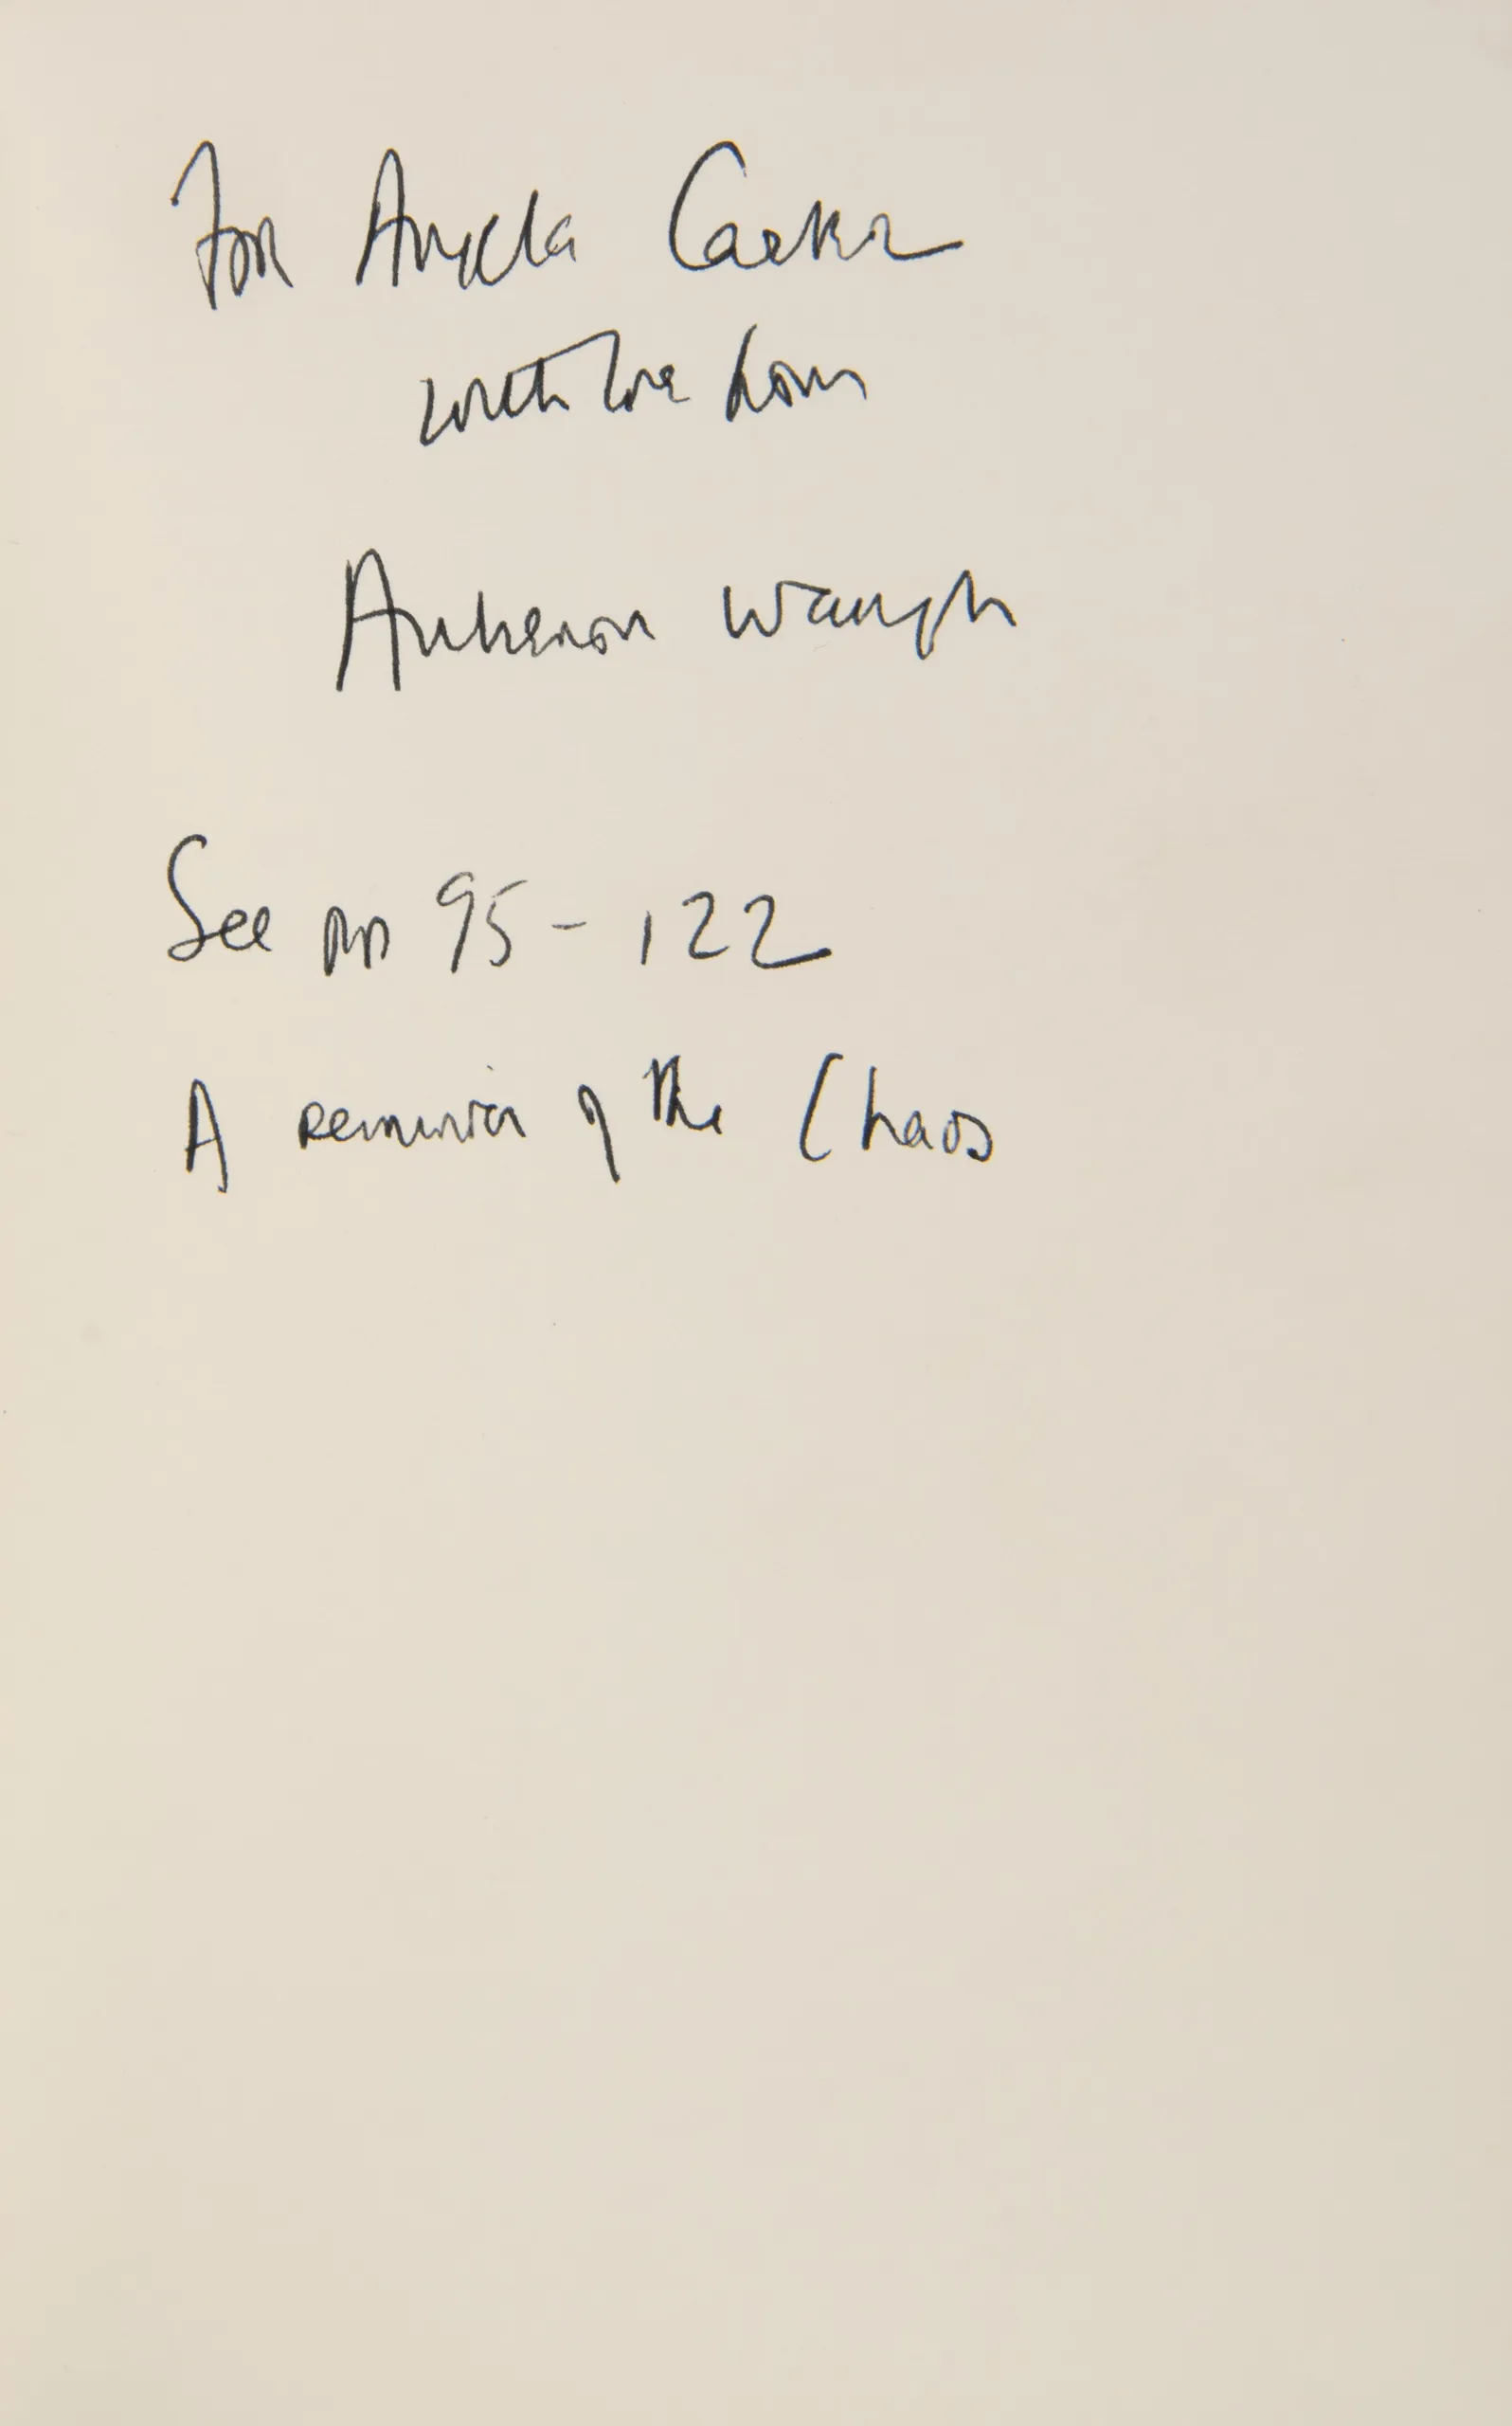 For Angela Carter
with love from
Auberon Waugh
See pp 95-122
A reminder of the Chaos